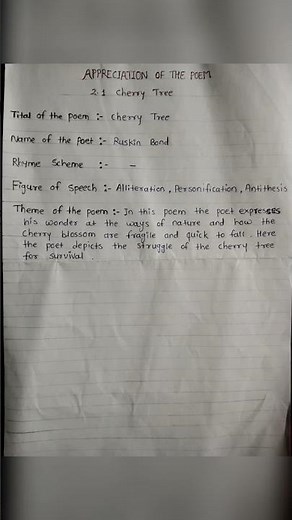 APPRECIATION OF THE POEM
2.1 Cherry Tree
Tital of the poem :- Cherry Tree
Name of the Poet :- Ruskin Bond
Rhyme Scheme :- -
Figure of speech :- Alliteration, Personification, Antithesis
Theme of the poem :- In this poem the poet expresses
his wonder at the ways of nature and how the
Cherry blossom are fragile and quick to fall. Here
the poet depicts the struggle of the cherry tree
for survival.